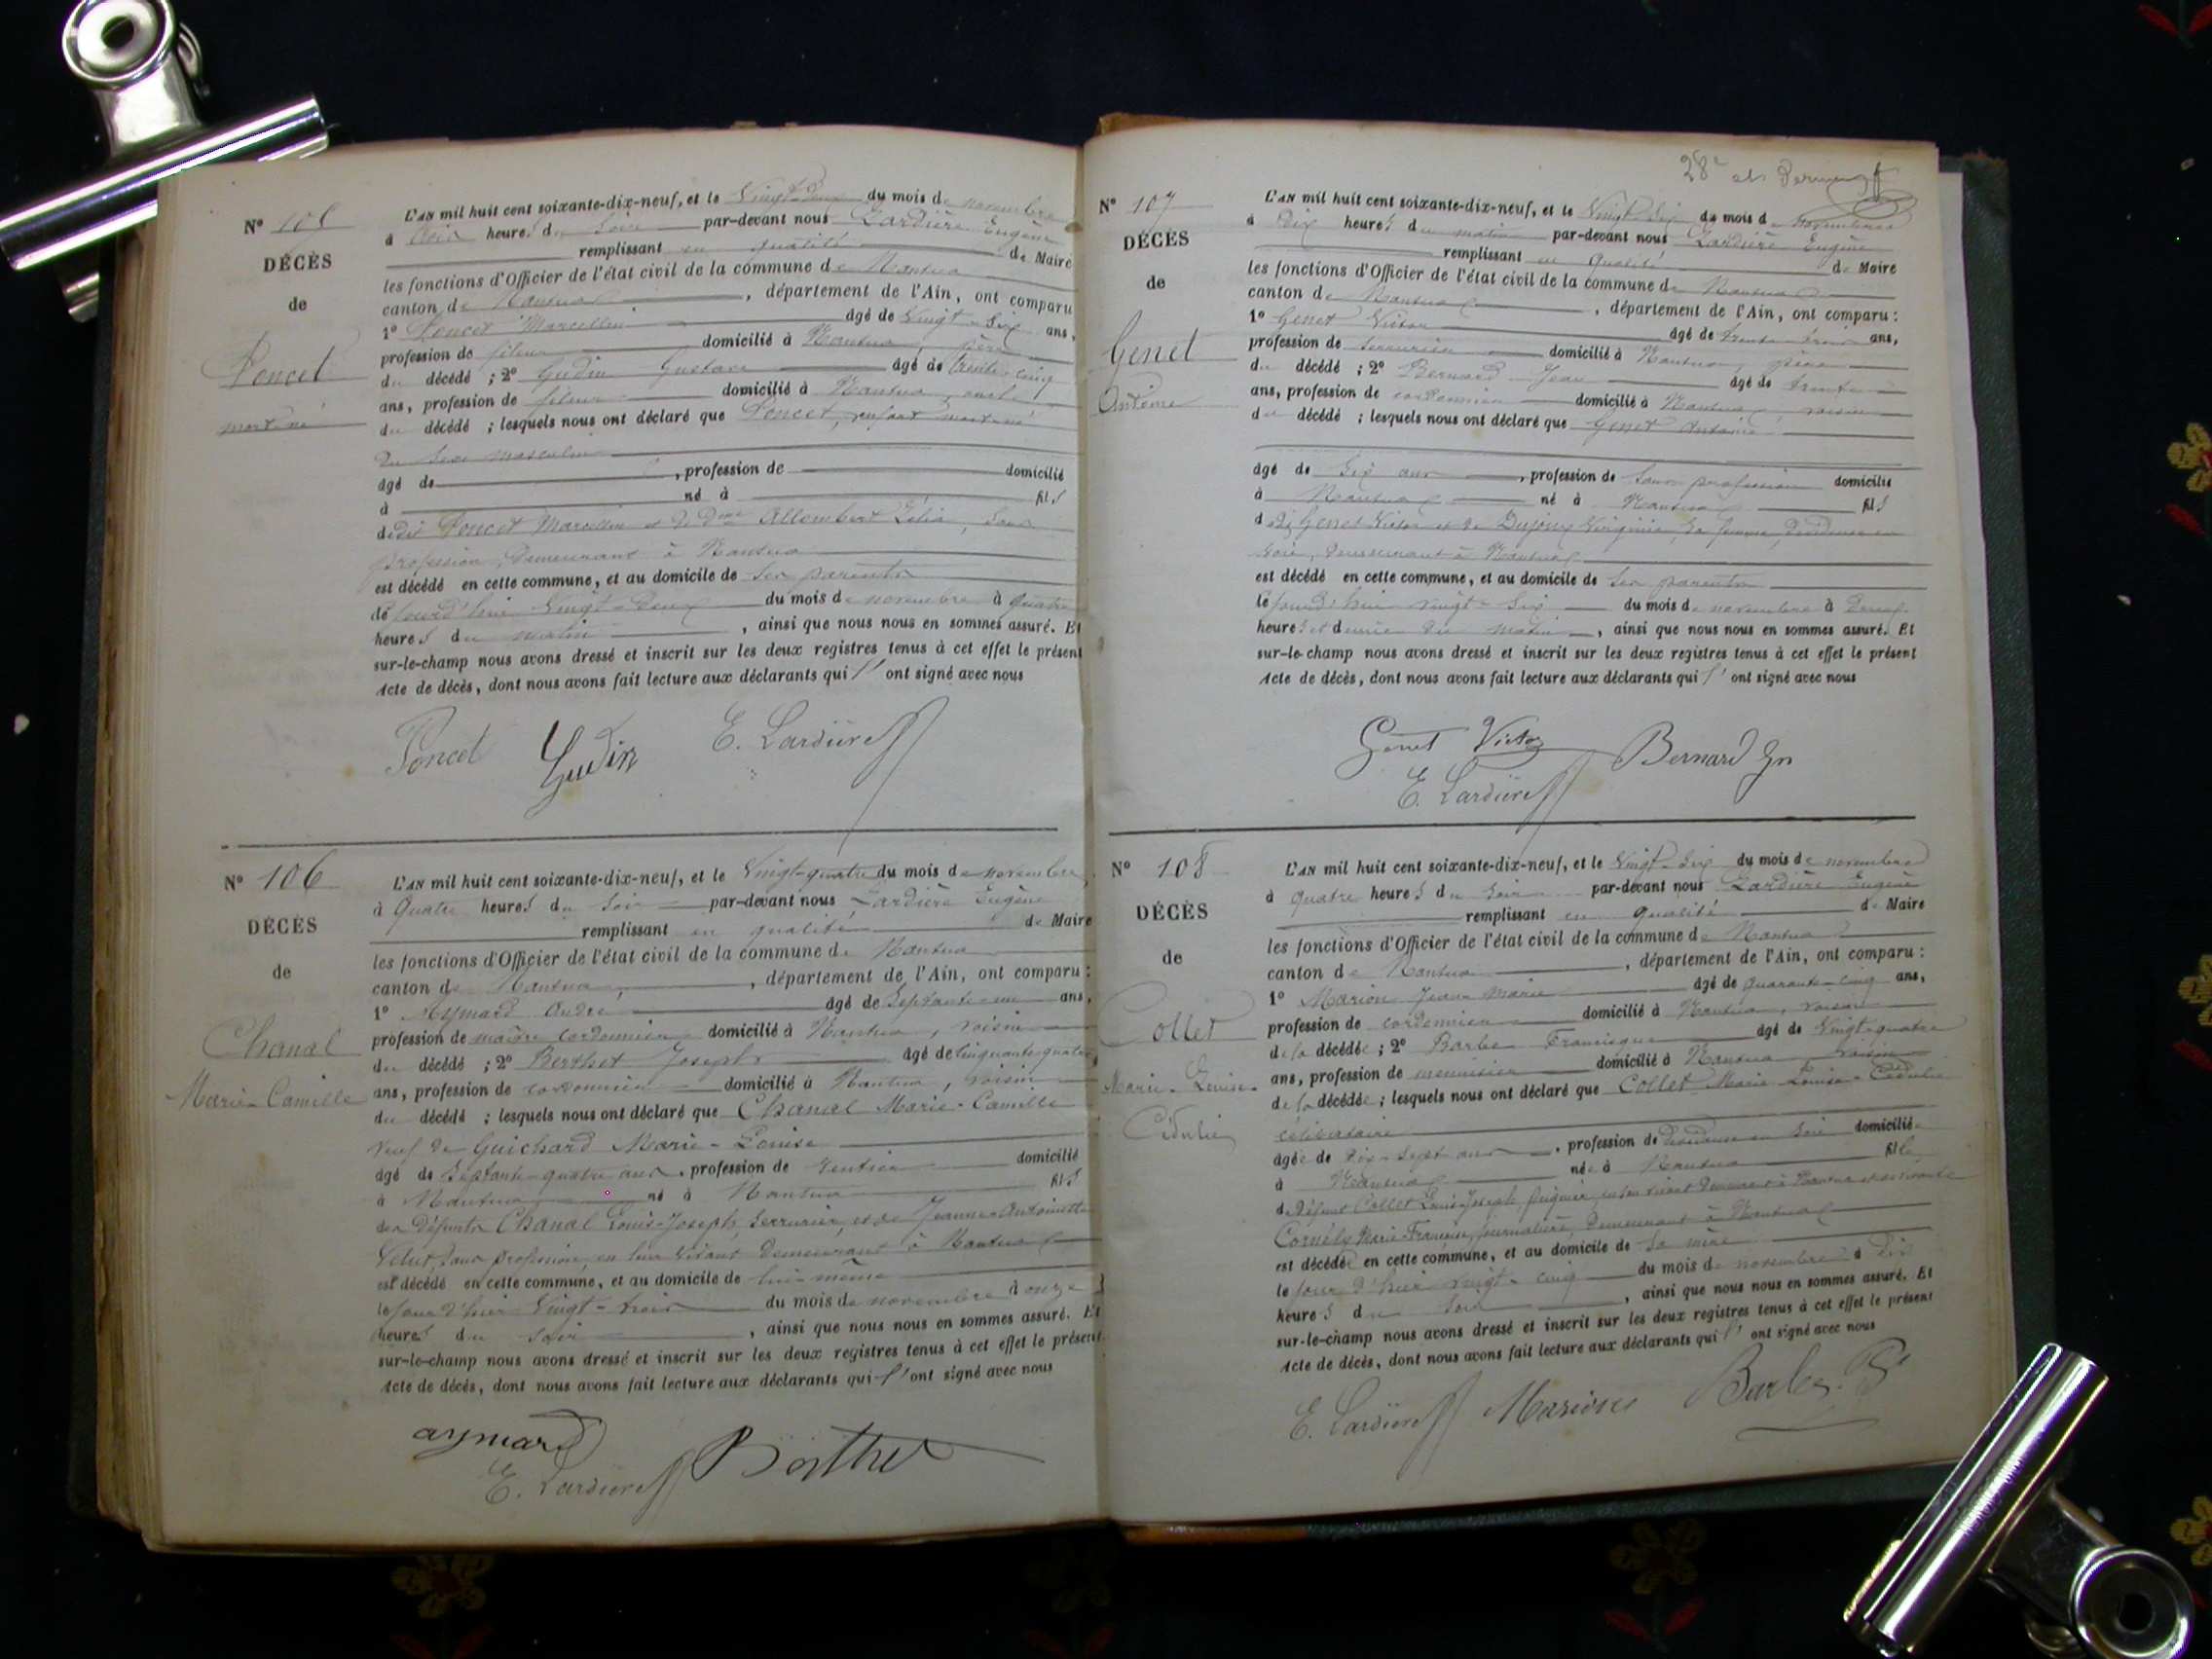 Nº 105
DÉCÈS
de
Poncet
mort né
L'AN mil huit cent soixante-dix-neuf, et le Vingt-deux du mois de novembre
à trois heures du soir par-devant nous Lardière Eugène
remplissant en qualité de Maire
les fonctions d'Officier de l'état civil de la commune de Nantua
canton de Nantua, département de l'Ain, ont comparu
1º Poncet Marcellin âgé de Vingt-six ans,
profession de fileur domicilié à Nantua, père
du décédé ; 2º Gudin Gustave âgé de trente-cinq
ans, profession de fileur domicilié à Nantua, oncle
du décédé ; lesquels nous ont déclaré que Poncet, enfant mort-né
du sexe masculin
âgé de , profession de domicilié
à né à fils
de dit Poncet Marcellin et de Dme Allombert Zélia, sans
profession, demeurant à Nantua
est décédé en cette commune, et au domicile de ses parents
le jourd'hui Vingt-deux du mois de novembre à quatre
heures du matin , ainsi que nous nous en sommes assuré. Et
sur-le-champ nous avons dressé et inscrit sur les deux registres tenus à cet effet le présent
Acte de décès, dont nous avons fait lecture aux déclarants qui l' ont signé avec nous
Poncet Gudin E. Lardière
Nº 106
DÉCÈS
de
Chanal
Marie-Camille
L'AN mil huit cent soixante-dix-neuf, et le Vingt-quatre du mois de novembre
à Quatre heures du soir par-devant nous Lardière Eugène
remplissant en qualité de Maire
les fonctions d'Officier de l'état civil de la commune de Nantua
canton de Nantua, département de l'Ain, ont comparu :
1º Aymard André âgé de Septante-un ans,
profession de maître cordonnier domicilié à Nantua, voisin
du décédé ; 2º Berthet Joseph âgé de Cinquante-quatre
ans, profession de cordonnier domicilié à Nantua, voisin
du décédé ; lesquels nous ont déclaré que Chanal Marie-Camille
veuf de Guichard Marie-Louise
âgé de Septante-quatre ans, profession de rentier domicilié
à Nantua né à Nantua fils
des défunts Chanal Louis-Joseph, serrurier, et de Jeanne-Antoinette
sans profession, en leur vivant demeurant à Nantua
est décédé en cette commune, et au domicile de lui-même
le jour d'hier Vingt-trois du mois de novembre à onze
heures du soir , ainsi que nous nous en sommes assuré. Et
sur-le-champ nous avons dressé et inscrit sur les deux registres tenus à cet effet le présent
Acte de décès, dont nous avons fait lecture aux déclarants qui l' ont signé avec nous
aymard
E. Lardière Berthet
28e et dernier
Nº 107
DÉCÈS
de
Genet
Antoine
L'AN mil huit cent soixante-dix-neuf, et le Vingt-six du mois de novembre
à Dix heures du matin par-devant nous Lardière Eugène
remplissant en qualité de Maire
les fonctions d'Officier de l'état civil de la commune de Nantua
canton de Nantua, département de l'Ain, ont comparu :
1º Genet Victor âgé de trente-trois ans,
profession de serrurier domicilié à Nantua, père
du décédé ; 2º Bernard Jean âgé de trente
ans, profession de cordonnier domicilié à Nantua, voisin
du décédé ; lesquels nous ont déclaré que Genet Antoine
âgé de six ans , profession de sans profession domicilié
à Nantua né à Nantua fils
de dit Genet Victor et de Dujoux Virginie, sa femme, dévideuse en
soie, demeurant à Nantua
est décédé en cette commune, et au domicile de ses parents
le jourd'hui vingt-six du mois de novembre à Deux
heures et demie du matin , ainsi que nous nous en sommes assuré. Et
sur-le-champ nous avons dressé et inscrit sur les deux registres tenus à cet effet le présent
Acte de décès, dont nous avons fait lecture aux déclarants qui l' ont signé avec nous
Genet Victor Bernard Jn
E. Lardière
Nº 108
DÉCÈS
de
Collet
Marie-Louise-
Cédulie
L'AN mil huit cent soixante-dix-neuf, et le Vingt-six du mois de novembre
à Quatre heures du soir par-devant nous Lardière Eugène
remplissant en qualité de Maire
les fonctions d'Officier de l'état civil de la commune de Nantua
canton de Nantua, département de l'Ain, ont comparu :
1º Marion Jean-Marie âgé de quarante-cinq ans,
profession de cordonnier domicilié à Nantua, voisin
de la décédée ; 2º Barbe Francisque âgé de Vingt-quatre
ans, profession de menuisier domicilié à Nantua, voisin
de la décédée ; lesquels nous ont déclaré que Collet Marie-Louise-Cédulie
célibataire
âgée de dix-sept ans , profession de dévideuse en soie domiciliée
à Nantua née à Nantua fille
de défunt Collet Louis-Joseph, peignier, en son vivant demeurant à Nantua et de vivante
Cornély Marie-Françoise, journalière, demeurant à Nantua
est décédée en cette commune, et au domicile de sa mère
le jour d'hier vingt-cinq du mois de novembre à Dix
heures du soir , ainsi que nous nous en sommes assuré. Et
sur-le-champ nous avons dressé et inscrit sur les deux registres tenus à cet effet le présent
Acte de décès, dont nous avons fait lecture aux déclarants qui l' ont signé avec nous
E. Lardière Marion Barbe. F